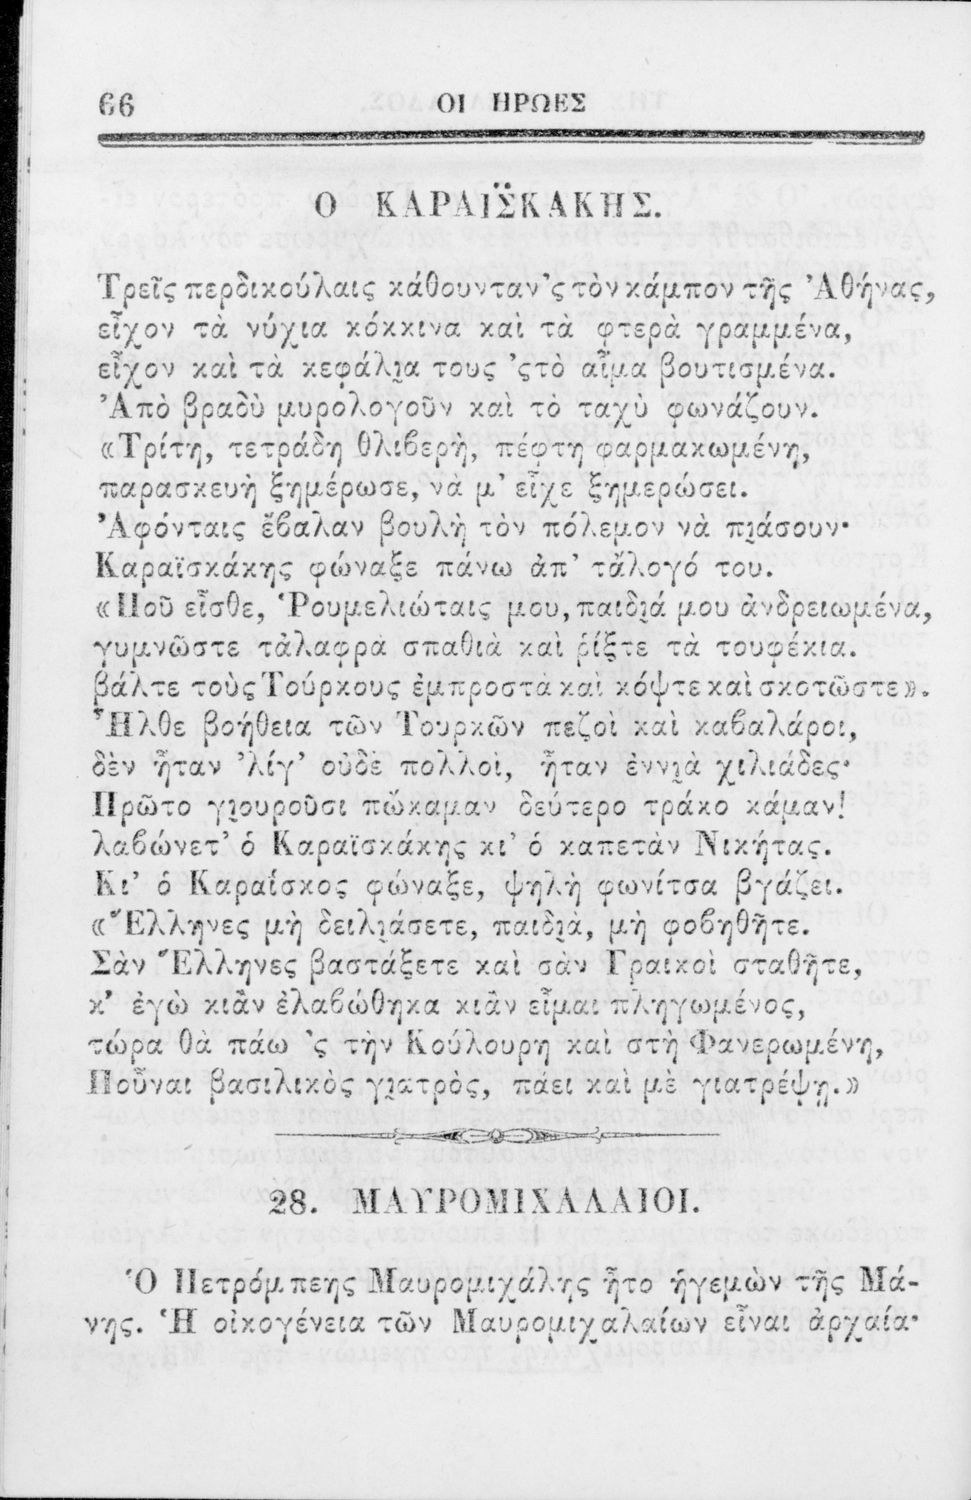 66 ΟΙ ΗΡΩΕΣ
Ο ΚΑΡΑΪΣΚΑΚΗΣ.
Τρεῖς περδικούλαις κάθουνταν ’ς τὸν κάμπον τῆς Ἀθήνας,
εἶχον τὰ νύχια κόκκινα καὶ τὰ φτερὰ γραμμένα,
εἶχον καὶ τὰ κεφάλι̯α τους ’ςτὸ αἷμα βουτισμένα.
Ἀπὸ βραδὺ μυρολογοῦν καὶ τὸ ταχὺ φωνάζουν.
«Τρίτη, τετράδη θλιβερὴ, πέφτη φαρμακωμένη,
παρασκευὴ ξημέρωσε, νὰ μ’ εἶχε ξημερώσει.
Ἀφόνταις ἔβαλαν βουλὴ τὸν πόλεμον νὰ πι̯άσουν·
Καραϊσκάκης φώναξε πάνω ἀπ’ τἄλογό του.
«Ποῦ εἶσθε, Ῥουμελιώταις μου, παιδι̯ά μου ἀνδρειωμένα,
γυμνῶστε τἀλαφρὰ σπαθιὰ καὶ ῥίξτε τὰ τουφέκια.
βάλτε τοὺς Τούρκους ἐμπροστὰ καὶ κόψτε καὶ σκοτῶστε».
Ἦλθε βοήθεια τῶν Τουρκῶν πεζοὶ καὶ καβαλάροι,
δὲν ἦταν ’λίγ’ οὐδὲ πολλοὶ, ἦταν ἐννι̯ὰ χιλιάδες·
Πρῶτο γι̯ουροῦσι πὤκαμαν δεύτερο τράκο κάμαν!
λαβώνετ’ ὁ Καραϊσκάκης κι’ ὁ καπετὰν Νικήτας.
Κι’ ὁ Καραΐσκος φώναξε, ψηλὴ φωνίτσα βγάζει.
«Ἕλληνες μὴ δειλι̯άσετε, παιδι̯ὰ, μὴ φοβηθῆτε.
Σὰν Ἕλληνες βαστάξετε καὶ σὰν Γραικοὶ σταθῆτε,
κ’ ἐγὼ κιἂν ἐλαβώθηκα κιἂν εἶμαι πληγωμένος,
τώρα θὰ πάω ’ς τὴν Κούλουρη καὶ στὴ Φανερωμένη,
Ποὖναι βασιλικὸς γι̯ατρὸς, πάει καὶ μὲ γιατρέψῃ.»
28. ΜΑΥΡΟΜΙΧΑΛΑΙΟΙ.
Ὁ Πετρόμπεης Μαυρομιχάλης ἦτο ἡγεμὼν τῆς Μά-
νης. Ἡ οἰκογένεια τῶν Μαυρομιχαλαίων εἶναι ἀρχαία·